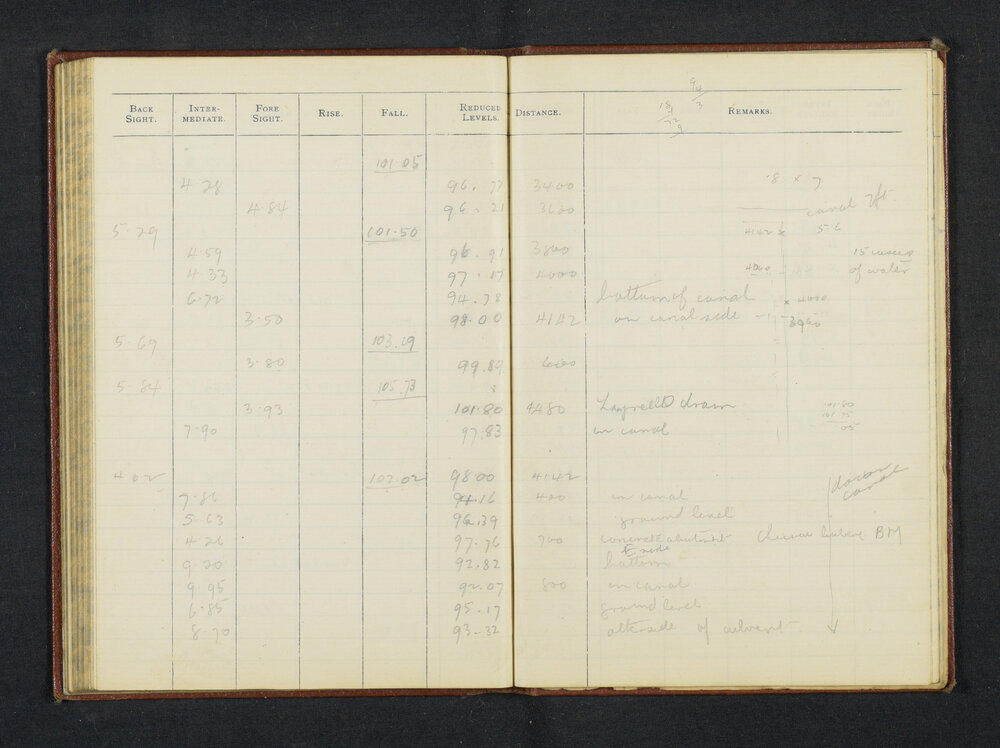 BACK SIGHT. INTER-MEDIATE. FORE SIGHT. RISE. FALL. REDUCED LEVELS. DISTANCE. REMARKS.
101.05
4.28 96.77 3400 .8 x 7
4.84 96.21 3600 canal 7ft
5.29 101.50 4142 x 5.6
4.59 96.91 3800 15
4.33 97.17 4000 4000 of water
6.72 94.78 bottom of canal x 4000
3.50 98.00 4142 on canal side 3960
5.69 103.69
3.80 99.89
5.84 105.73
3.93 101.80 4480 drain 101.80
101.75
7.90 97.83 in canal .05
4.02 102.02 98.00 4142 down canal
7.86 94.16 400 in canal
5.63 96.39 ground level
4.26 97.76 700 concrete BM
E side
9.20 92.82 bottom
9.95 92.07 800 in canal
6.85 95.17 ground level
8.70 93.32 of culvert